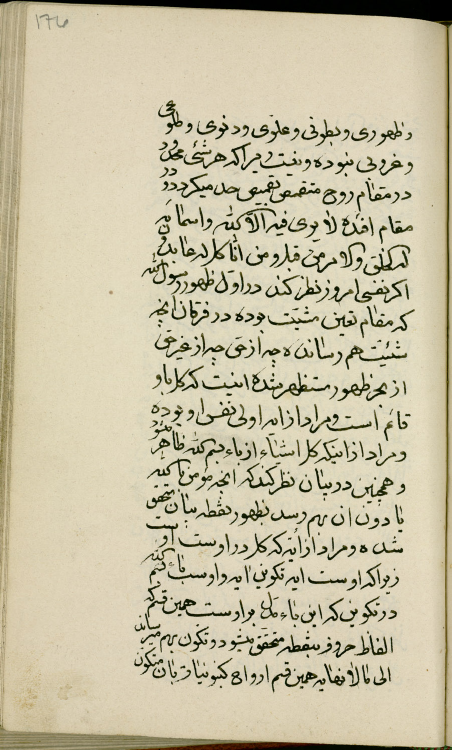 176
و ظهوری و بطونی و علوی و دنوی و طلوعی
و غروبی نبوده و نیست زیرا که هر شئ محدود
در مقام روح متقمص بقمیص حد میگردد و در
مقام افئده لا یری فیه الا الله و اسمائه
له الخلق و الامر من قبل و من بعد انا کل له عابدون
اکر نفسی امروز نظر کند در اول ظهور رسول الله
که مقام تعین مشیت بوده در فرقان انچه
شیئیت هم رسانده چه از حی چه از غیر حی
از بحر ظهور مستظهر شده اینست که کل باو
قائم است و مراد از ایه اولی نفس او بوده
و مراد از اینکه کل اشیاء از باء بسم الله ظاهر میشود
و همچنین در بیان نظر کند که انچه مؤمن بالله
یا دون ان بهم رسد بظهور نقطه بیان متحقق
شده و مراد از ایه که کل در اوست اوست
زیرا که اوست ایه تکوین ایه و اوست باء بسم الله
در تکوین که این باء دال بر اوست همین قسم که
الفاظ حروف بنقطه متحقق میشود و تکون بهم میرساند
الی ما لا نهایه همین قسم ارواح کینونیات بان متکون